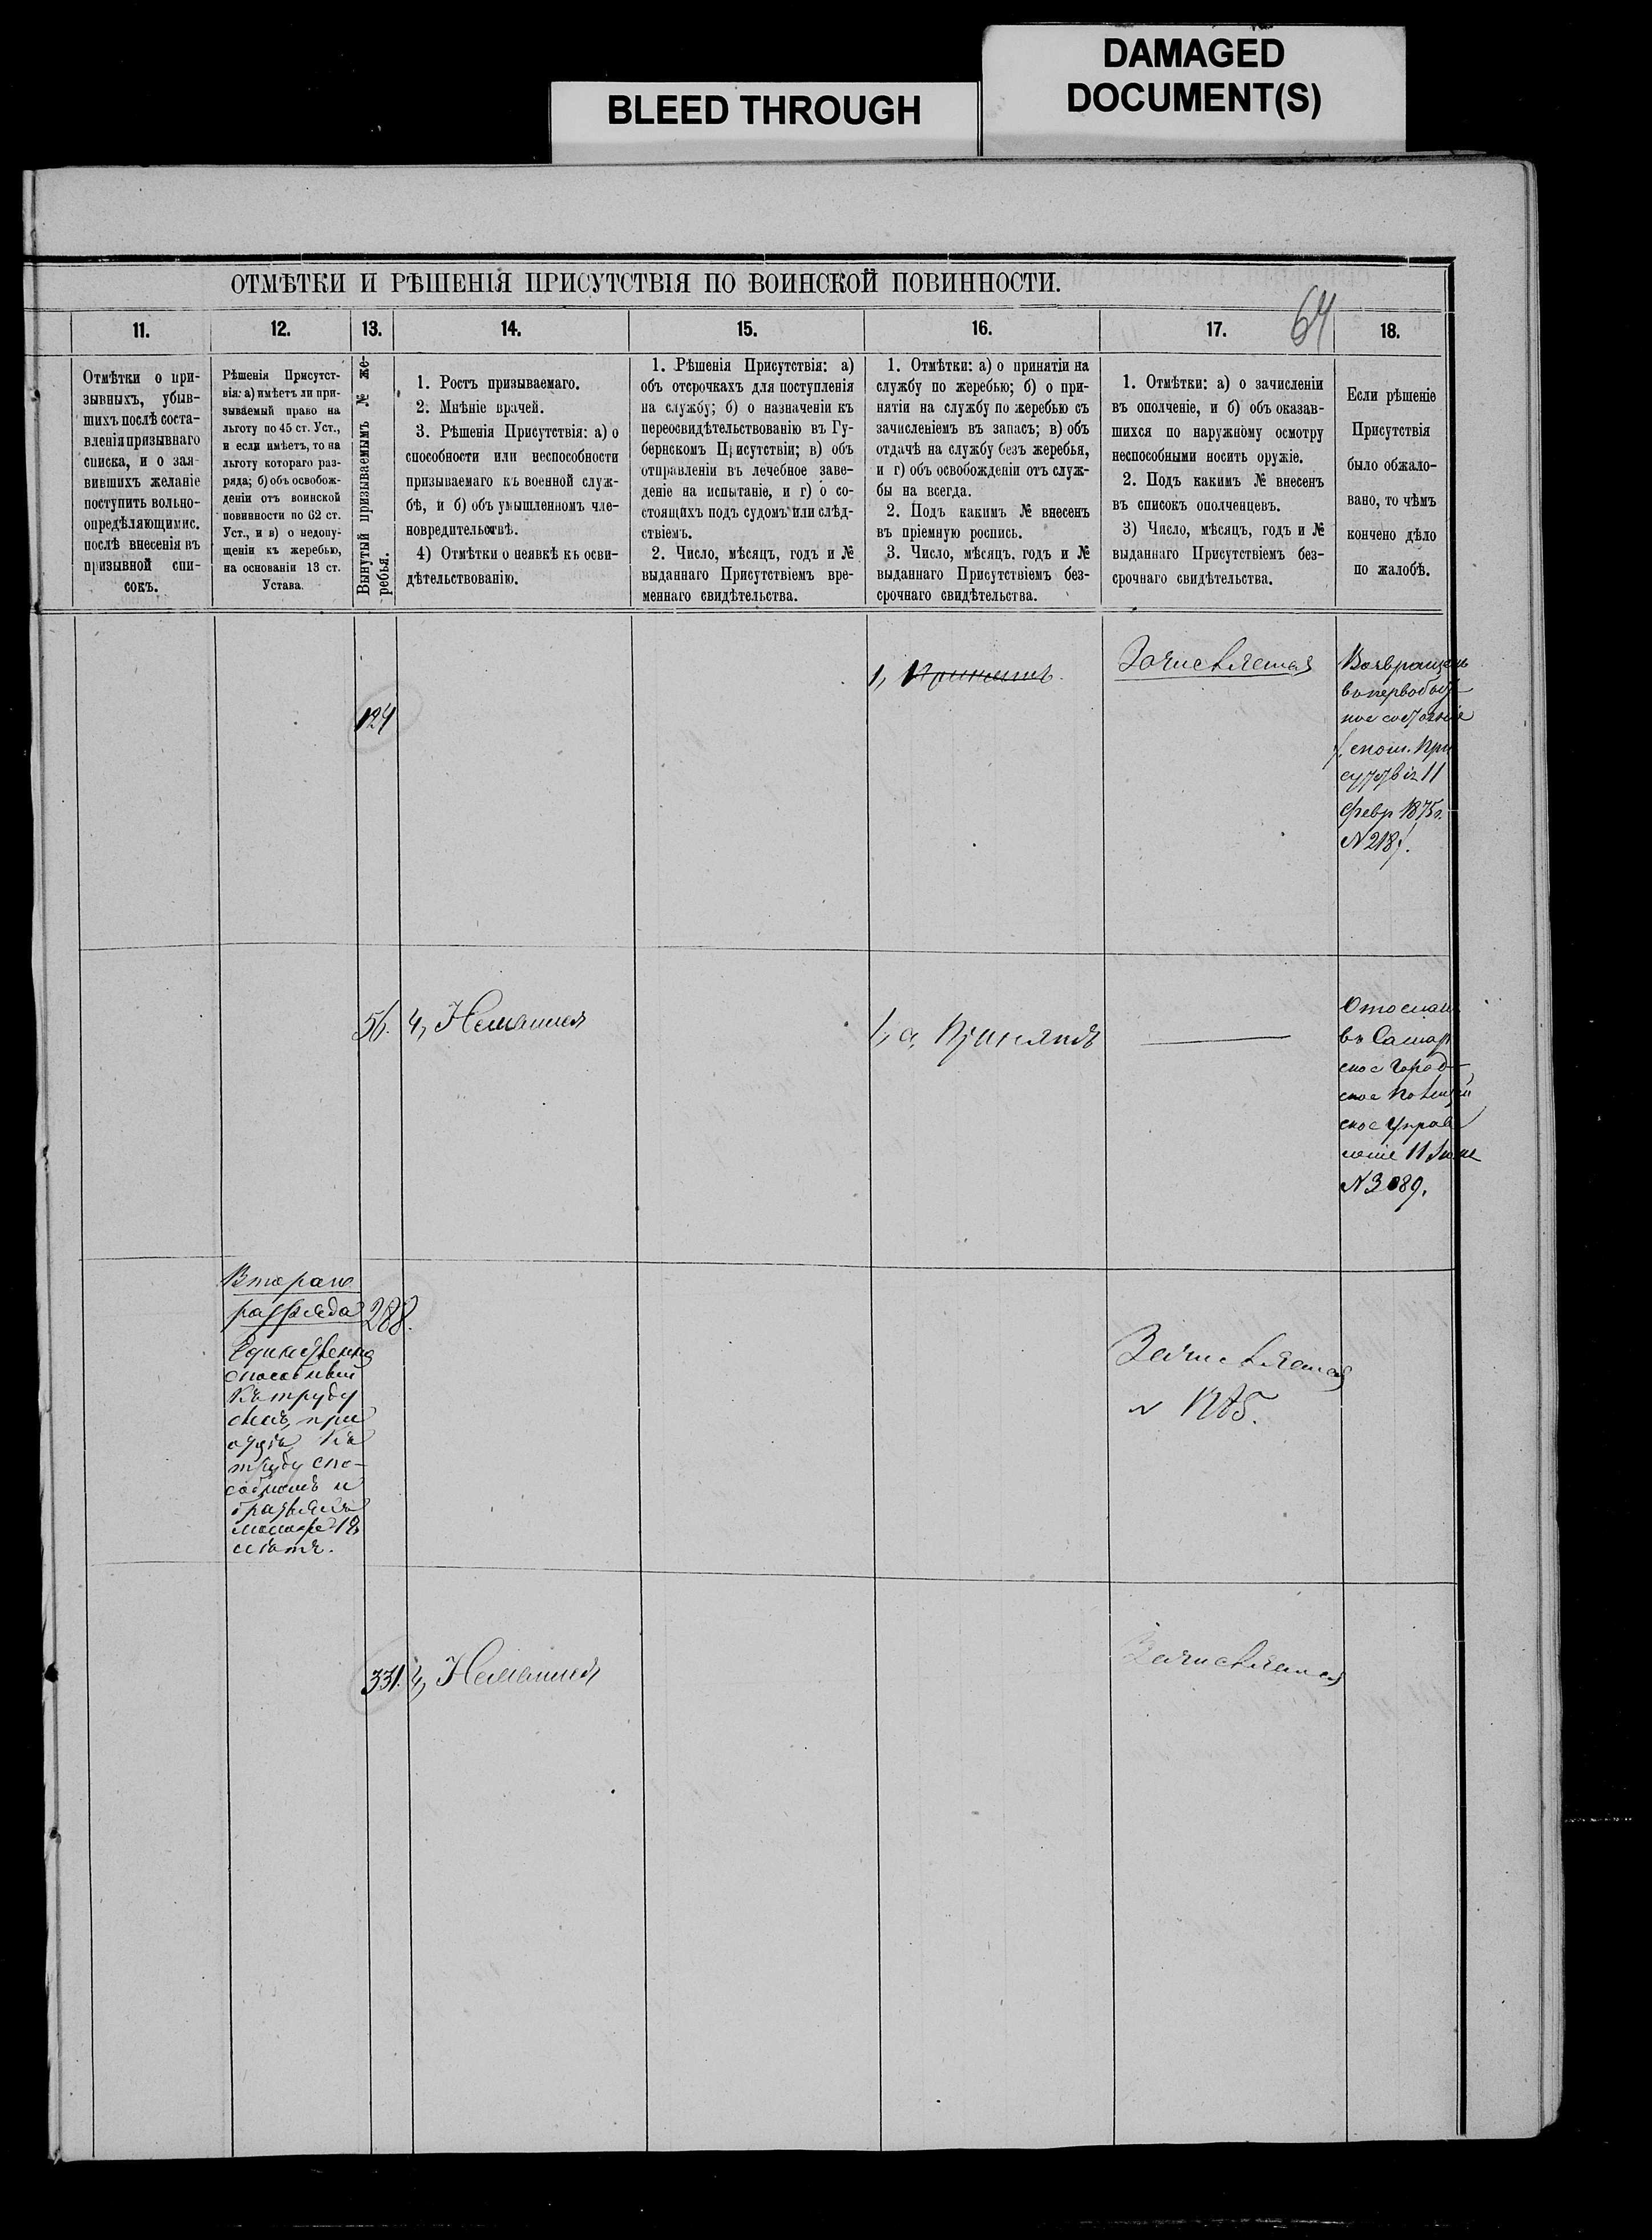 BLEED THROUGH
DAMAGED
DOCUMENT(S)
ОТМѢТКИ И РѢШЕНІЯ ПРИСУТСТВІЯ ПО ВОИНСКОЙ ПОВИННОСТИ.
64
11.
12.
13.
14.
15.
16.
17.
18.
Отмѣтки о при-
зывныхъ, убыв-
шихъ послѣ соста-
вленія призывнаго
списка, и о зая-
вившихъ желаніе
поступить вольно-
опредѣляющимис.
послѣ внесенія въ
призывной спи-
сокъ.
Рѣшенія Присутст-
вія: а) имѣетъ ли при-
зываемый право на
льготу по 45 ст. Уст.,
и если имѣетъ, то на
льготу котораго раз-
ряда; б) объ освобож-
деніи отъ воинской
повинности по 62 ст.
Уст., и в) о недопу-
щеніи къ жеребью,
на основаніи 13 ст.
Устава.
Вынутый призываемымъ № же-
ребья.
1. Ростъ призываемаго.
2. Мнѣніе врачей.
3. Рѣшенія Присутствія: а) о
способности или неспособности
призываемаго къ военной служ-
бѣ, и б) объ умышленномъ чле-
новредительствѣ.
4) Отмѣтки о неявкѣ къ осви-
дѣтельствованію.
1. Рѣшенія Присутствія: а)
объ отсрочкахъ для поступленія
на службу; б) о назначеніи къ
переосвидѣтельствованію въ Гу-
бернскомъ Присутствіи; в) объ
отправленіи въ лечебное заве-
деніе на испытаніе, и г) о со-
стоящихъ подъ судомъ или слѣд-
ствіемъ.
2. Число, мѣсяцъ, годъ и №
выданнаго Присутствіемъ вре-
меннаго свидѣтельства.
1. Отмѣтки: а) о принятіи на
службу по жеребью; б) о при-
нятіи на службу по жеребью съ
зачисленіемъ въ запасъ; в) объ
отдачѣ на службу безъ жеребья,
и г) объ освобожденіи отъ служ-
бы на всегда.
2. Подъ какимъ № внесенъ
въ пріемную роспись.
3. Число, мѣсяцъ, годъ и №
выданнаго Присутствіемъ без-
срочнаго свидѣтельства.
1. Отмѣтки: а) о зачисленіи
въ ополченіе, и б) объ оказав-
шихся по наружному осмотру
неспособными носить оружіе.
2. Подъ какимъ № внесенъ
въ списокъ ополченцевъ.
3) Число, мѣсяцъ, годъ и №
выданнаго Присутствіемъ без-
срочнаго свидѣтельства.
Если рѣшеніе
Присутствія
было обжало-
вано, то чѣмъ
кончено дѣло
по жалобѣ.
124
1, Принятъ.
Зачисляется
Возвращенъ
въ первобыт
ное состояніе
снош. При
сутствія 11
Февр 1875 г.
N 218).
56.
4, Неявился
1, а, Принятъ
Отослан
въ Самар
ское Город
ское Полицей
ское Управ
леніе 11 Іюня
N 3089.
Втораго
разряда
288.
Единственно
способный
къ труду
сынъ, при
отцѣ къ
труду спо-
собномъ и
братьяхъ
моложе 18
лѣтъ.
Зачисляется
331.
4, Неявился
Зачисляется